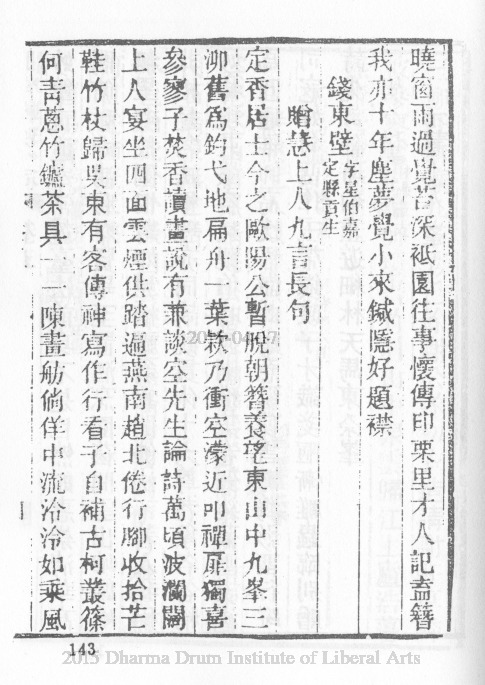 曉窗雨過覺苔深祇園往事懷傳印栗里才人記盍簪
我亦十年塵夢覺小來鍼隱好題襟
錢東壁字星伯嘉定縣貢生
贈慧上人九言長句
定香居士今之歐陽公暫脫朝簪養望東山中九峯三
泖舊為釣弋地扁舟一葉款乃衝空濛近叩禪扉獨喜
參寥子焚香讀畫說有兼談空先生論詩萬頃波瀾闊
上人宴坐四面雲煙供踏遍燕南趙北倦行腳收拾芒
鞋竹杖歸吳東有客傳神寫作行看子自補古柯叢篠
何青蔥竹鑪茶具一一陳畫舫倘佯中流泠泠如乘風
143
2015-04-07
2015 Dharma Drum Institute of Liberal Arts